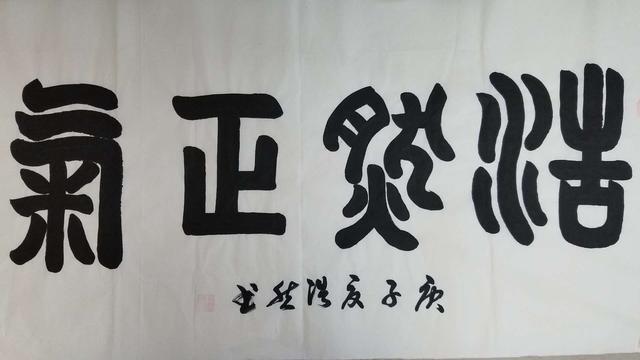 浩然正氣
庚子夏浩然书